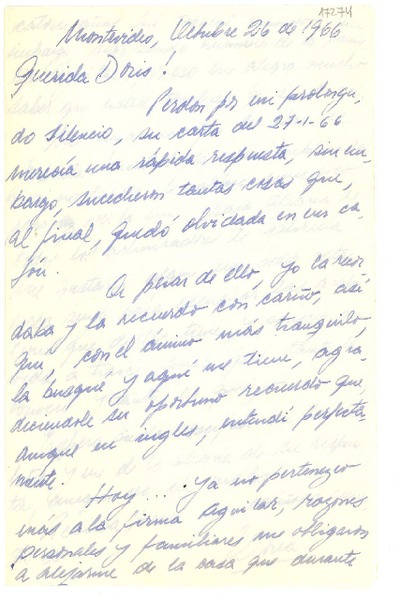 17274
Montevideo, Octubre 26 de 1966
Querida Doris!
Perdon por mi prolonga-
do silencio, su carta del 27-1-66
merecía una rápida respuesta, sin em-
bargo, sucedieron tantas cosas que,
al final, quedó olvidada en un ca-
jón.
A pesar de ello, yo la recor-
daba y la recuerdo con cariño, así
que, con el ánimo más tranquilo,
la busqué y aquí me tiene, agra-
deciendole su oportuno recuerdo que,
aunque en ingles, entendí perfecta-
mente.
Hoy ... ya no pertenezco
mas a la firma Aguilar, razones
personales y familiares me obligaron
a alejarme de la casa que durante